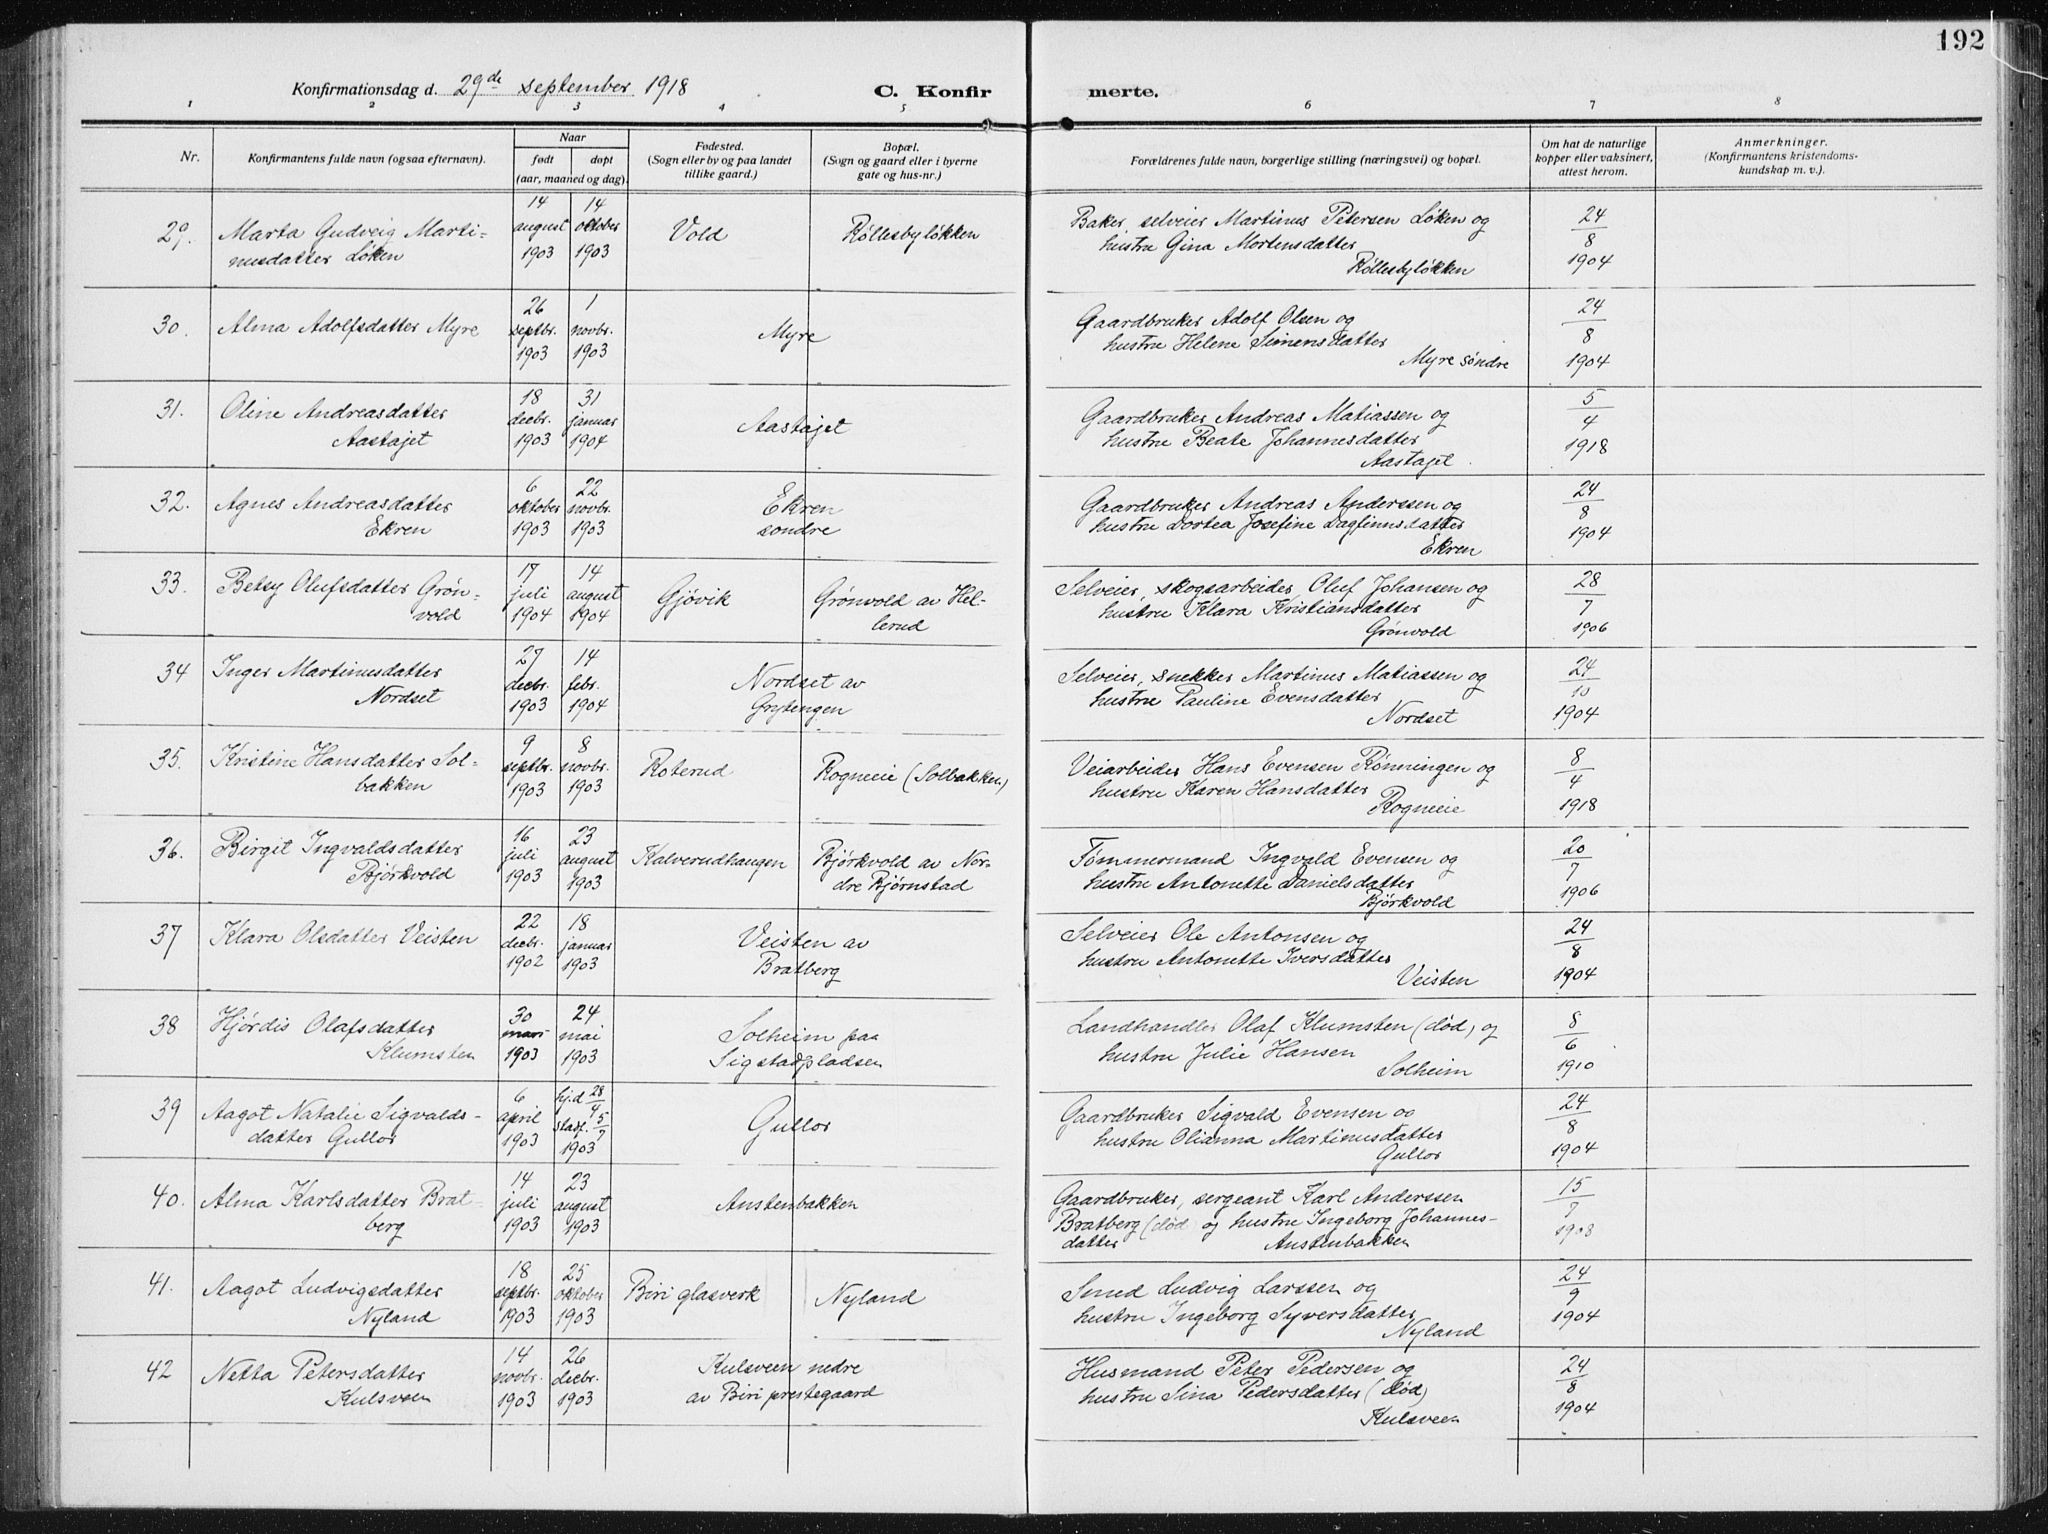 192
Konfirmationsdag d. 29de september 1918
C. Konfir merte.
1 2 3 4 5 6 7 8
Nr.
Konfirmantens fulde navn (ogsaa efternavn).
Naar
født døpt
(aar, maaned og dag).
Fødested.
(Sogn eller by og paa landet
tillike gaard.)
Bopæl.
(Sogn og gaard eller i byerne
gate og hus-nr.)
Forældrenes fulde navn, borgerlige stilling (næringsvei) og bopæl.
Om hat de naturlige
kopper eller vaksinert,
attest herom.
Anmerkninger.
(Konfirmantens kristendoms-
kundskap m. v.).
29. Marta Gudveig Marti-
nusdatter Løken
14 august 1903
14 oktober 1903
Vold
Røllesbyløkken
Baker, selveier Martinus Petersen Løken og
hustru Gina Mortensdatter
Røllesbyløkken
24/8 1904
30. Alma Adolfsdatter Myre
26 septbr. 1903
1 novbr. 1903
Myre
Gaardbruker Adolf Olsen og
hustru Helene Simensdatter
Myre søndre
24/8 1904
31. Oline Andreasdatter
Aastajet
18 decbr. 1903
31 januar 1904
Aastajet
Gaardbruker Andreas Matiassen og
hustru Beate Johannesdatter
Aastajet.
5/4 1918
32. Agnes Andreasdatter
Ekren
6 oktober 1903
22 novbr. 1903
Ekren
søndre
Gaardbruker Andreas Anderssen og
hustru Dortea Josefine Dagfinnsdatter
Ekren
24/8 1904
33. Betsy Olufsdatter Grøn-
vold
17 juli 1904
14 august 1904
Gjøvik
Grønvold av Hel-
lerud
Selveier, skogsarbeider Oluf Johansen og
hustru Klara Kristiansdatter
Grønvold
28/7 1906
34 Inger Martinusdatter
Nordset
27 decbr. 1903
14 febr. 1904
Nordset av
Grytengen
Selveier, snekker Martinus Matiassen og
hustru Pauline Evensdatter
Nordset
24/10 1904
35. Kristine Hansdatter Sol-
bakken
9 septbr. 1903
8 novbr. 1903
Roterud
Rogneeie (Solbakken)
Veiarbeider Hans Evensen Rønningen og
hustru Karen Hansdatter
Rogneeie
8/4 1918
36. Birgit Ingvaldsdatter
Bjørkvold
16 juli 1903
23 august 1903
Kalverudhaugen
Bjørkvold av Nor-
dre Bjørnstad
Tømmermand Ingvald Evensen og
hustru Antonette Danielsdatter
Bjørkvold
20/7 1906
37 Klara Olsdatter Veisten
22 decbr. 1902
18 januar 1903
Veisten av
Bratberg
Selveier Ole Antonsen og
hustru Antonette Iversdatter
Veisten
24/8 1904
38 Hjørdis Olafsdatter
Klumsten
30 mars 1903
24 mai 1903
Solheim paa
Sigstadpladsen
Landhandler Olaf Klumsten (død) og
hustru Julie Hansen
Solheim
8/6 1910
39 Aagot Natalie Sigvalds-
datter Gullor
6 april 1903
hj.d 28/4 stadf. 5/7 1903
Gullor
Gaardbruker Sigvald Evensen og
hustru Olianna Martinusdatter
Gullor
24/8 1904
40. Alma Karlsdatter Brat-
berg
14 juli 1903
23 august 1903
Anstenbakken
Gaardbruker, sergeant Karl Anderssen
Bratberg (død og hustru Ingeborg Johannes-
datter Anstenbakken
15/7 1908
41. Aagot Ludvigsdatter
Nyland
18 septbr. 1903
25 oktober 1903
Biri glasverk
Nyland
Smed Ludvig Larssen og
hustru Ingeborg Syversdatter
Nyland
24/9 1904
42 Netta Petersdatter
Kulsveen
14 novbr. 1903
26 decbr. 1903
Kulsveen nedre
av Biri prestegaard
Husmand Peter Pedersen og
hustru Sina Pedersdatter (død)
Kulsveen
24/8 1904